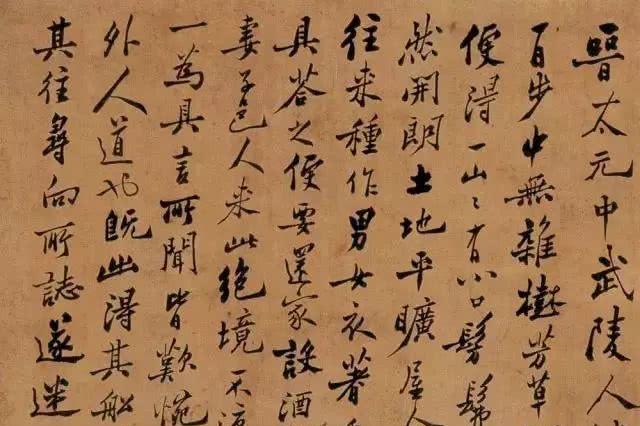 晉太元中武陵人
百步中無雜樹芳草
便得一山々有小口髣髴
然開朗土地平曠屋
往來種作男女衣著
具荅之便要還家設酒
妻子邑人来此絶境不
一為具言所聞皆歎惋
外人道也既出得其船
其往尋向所誌遂迷